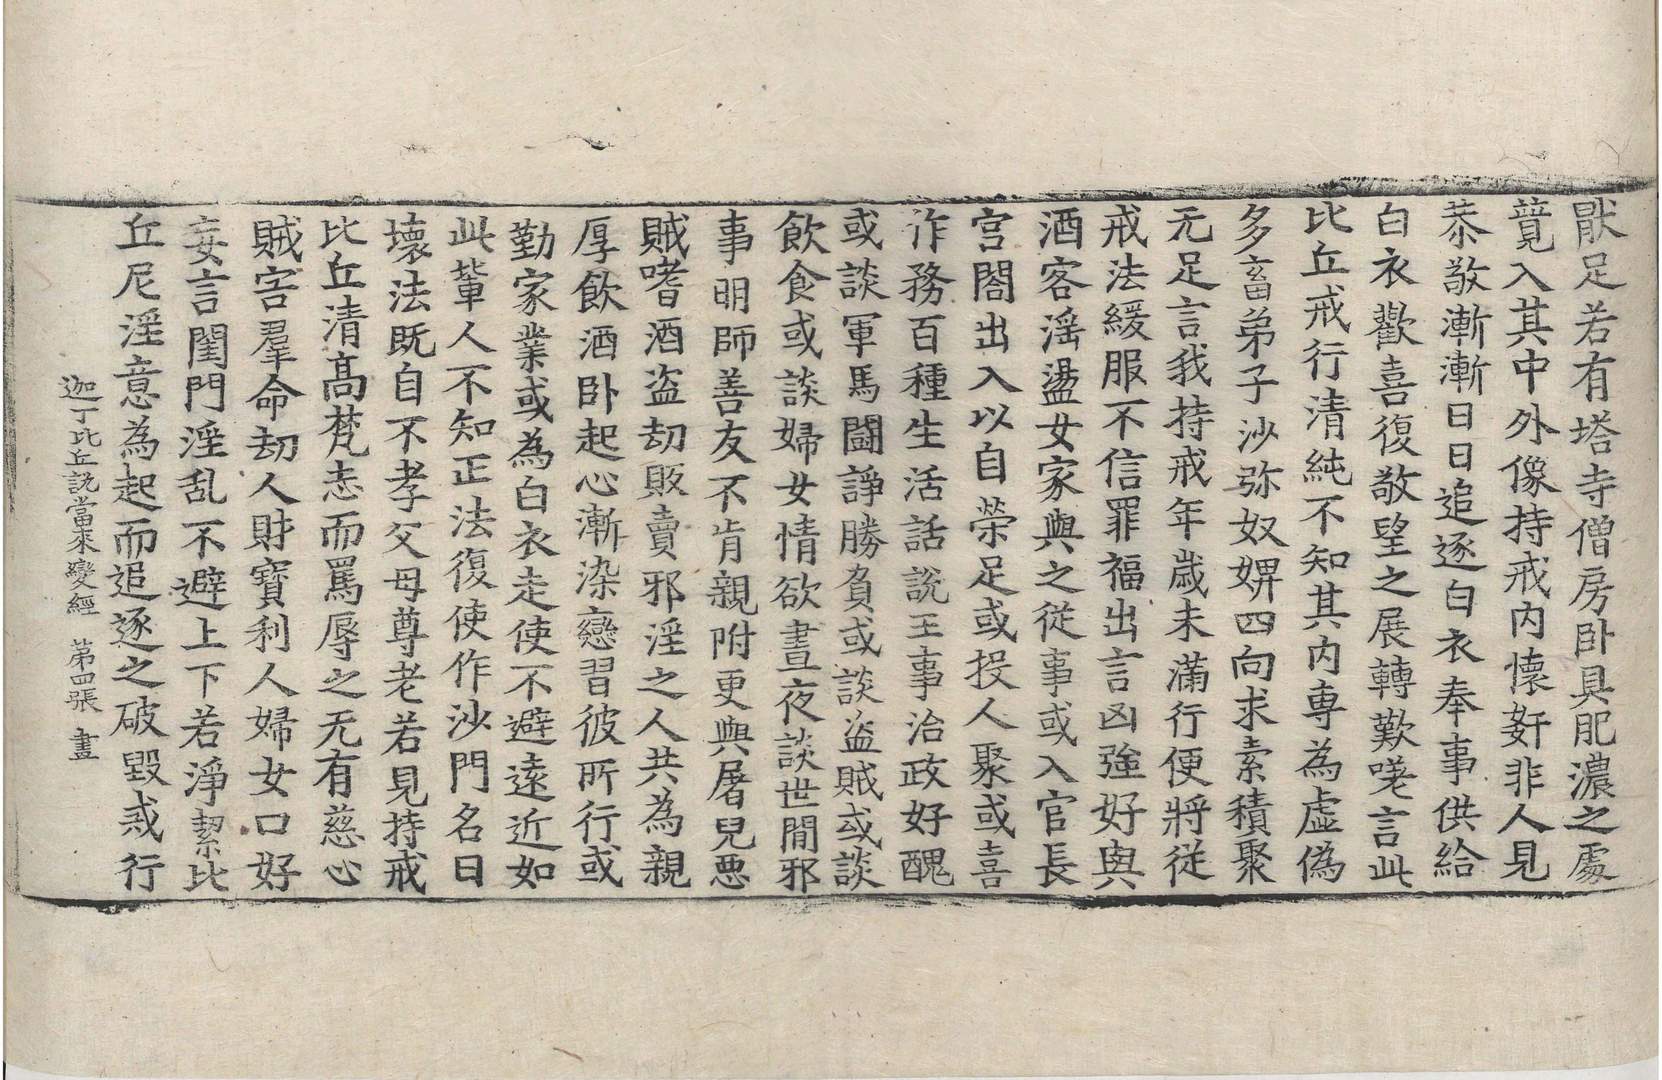 猒足若有塔寺僧房卧具肥濃之處
競入其中外像持戒内懷姧非人見
恭敬漸漸日日追逐白衣奉事供給
白衣歡喜復敬望之展轉歎嘆言此
比丘戒行清純不知其内專為虛偽
多畜弟子沙弥奴婢四向求索積聚
无足言我持戒年歲未滿行便將從
戒法緩服不信罪福出言凶強好與
酒客滛盪女家與之從事或入官長
宫閤出入以自榮足或投人聚或喜
作務百種生活話說王事治政好醜
或談軍馬鬪諍勝負或談盜賊或談
飲食或談婦女情欲晝夜談世閒邪
事明師善友不肯親附更與屠兒悪
賊嗜酒盜劫販賣邪淫之人共為親
厚飲酒卧起心漸染戀習彼所行或
勤家業或為白衣走使不避遠近如
此輩人不知正法復使作沙門名曰
壞法既自不孝父母尊老若見持戒
比丘清髙梵志而罵辱之无有慈心
賊害羣命劫人財寶利人婦女口好
妄言閨門淫乱不避上下若淨絜比
丘尼淫意為起而追逐之破毀戒行
迦丁比丘說當來變經 第四張 畫